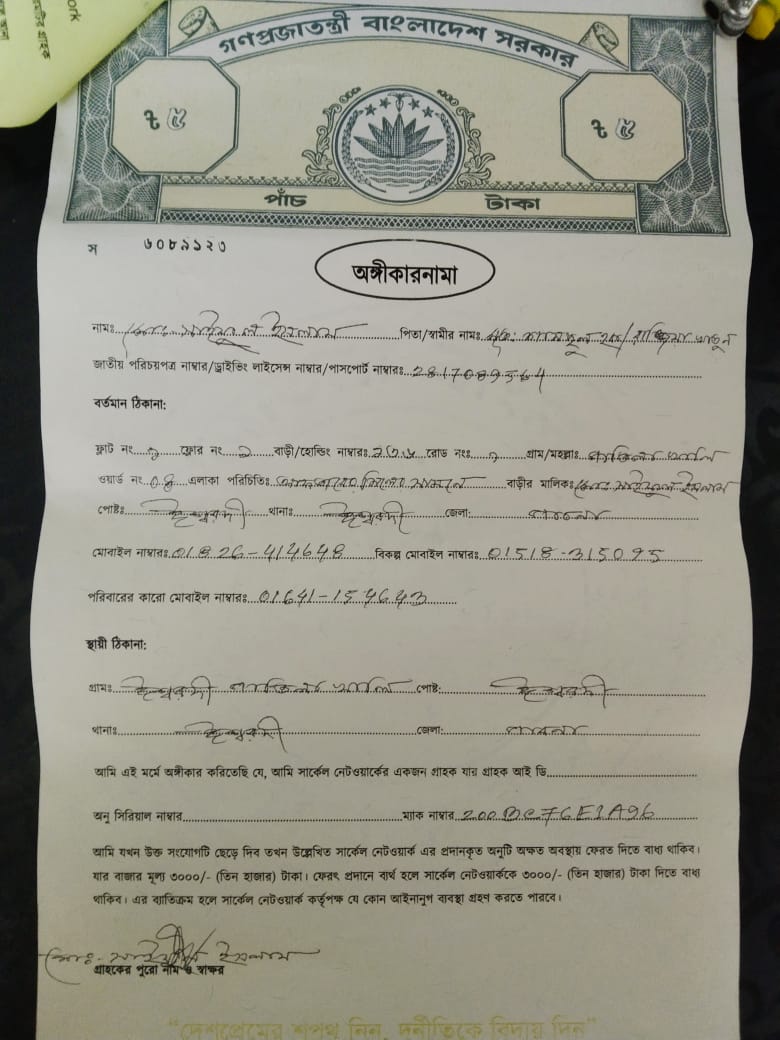 গণপ্রজাতন্ত্রী বাংলাদেশ সরকার
৳ ৫ ৳ ৫
পাঁচ টাকা
স ৬০৮৯১২৩
অঙ্গীকারনামা
নামঃ মোঃ সাইদুল ইসলাম পিতা/স্বামীর নামঃ
জাতীয় পরিচয়পত্র নাম্বার/ড্রাইভিং লাইসেন্স নাম্বার/পাসপোর্ট নাম্বারঃ 2817089564
বর্তমান ঠিকানা:
ফ্লাট নং ফ্লোর নং বাড়ী/হোল্ডিং নাম্বারঃ ২৩৬ রোড নংঃ গ্রাম/মহল্লাঃ
ওয়ার্ড নং 04 এলাকা পরিচিতিঃ বাড়ীর মালিকঃ মোঃ সাইদুল ইসলাম
পোষ্টঃ ঈশ্বরদী থানাঃ ঈশ্বরদী জেলাঃ পাবনা
মোবাইল নাম্বারঃ 01826-414648 বিকল্প মোবাইল নাম্বারঃ 01518-315095
পরিবারের কারো মোবাইল নাম্বারঃ 01641-154643
স্থায়ী ঠিকানা:
গ্রামঃ ঈশ্বরদী পোষ্ট: ঈশ্বরদী
থানাঃ ঈশ্বরদী জেলা: পাবনা
আমি এই মর্মে অঙ্গীকার করিতেছি যে, আমি সার্কেল নেটওয়ার্কের একজন গ্রাহক যার গ্রাহক আই ডি
অনু সিরিয়াল নাম্বার ম্যাক নাম্বার 200BC76E1A96
আমি যখন উক্ত সংযোগটি ছেড়ে দিব তখন উল্লেখিত সার্কেল নেটওয়ার্ক এর প্রদানকৃত অনুটি অক্ষত অবস্থায় ফেরত দিতে বাধ্য থাকিব।
যার বাজার মূল্য ৩০০০/- (তিন হাজার) টাকা। ফেরৎ প্রদানে ব্যর্থ হলে সার্কেল নেটওয়ার্ককে ৩০০০/- (তিন হাজার) টাকা দিতে বাধ্য
থাকিব। এর ব্যাতিক্রম হলে সার্কেল নেটওয়ার্ক কর্তৃপক্ষ যে কোন আইনানুগ ব্যবস্থা গ্রহণ করতে পারবে।
মোঃ সাইদুল ইসলাম
গ্রাহকের পুরো নাম ও স্বাক্ষর
"দেশপ্রেমের শপথ নিন, দুর্নীতিকে বিদায় দিন"